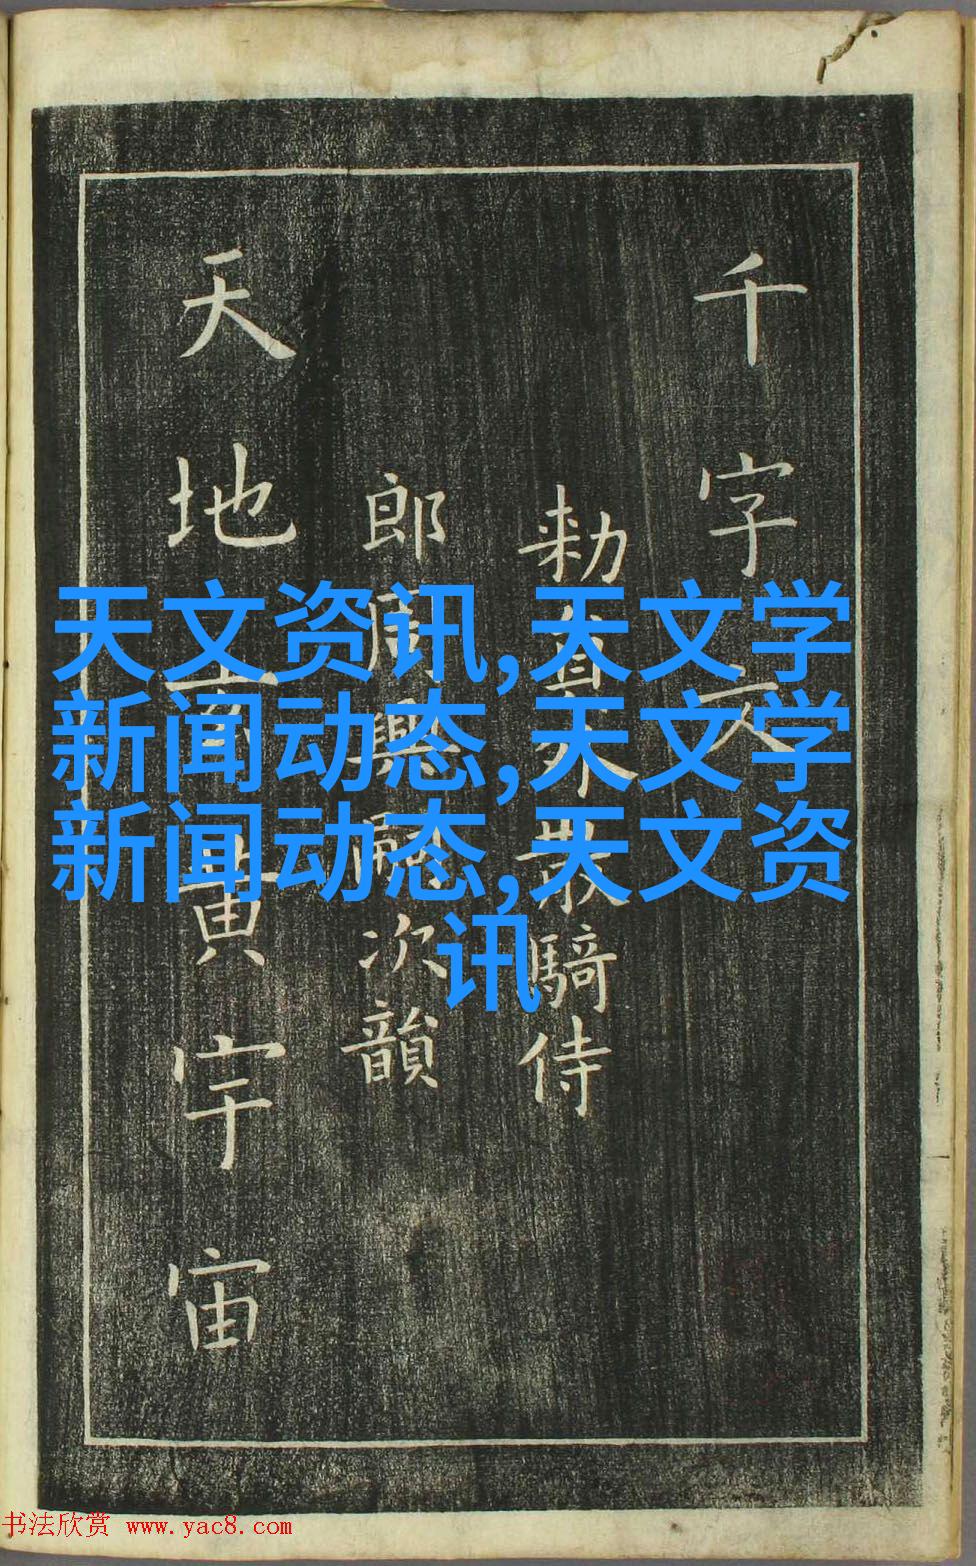 千字文
勅員外散騎侍
郎周興嗣次韻
天地玄黃宇宙
天文资讯,天文学
新闻动态,天文学
新闻动态,天文资
讯
书法欣赏 www.yac8.com